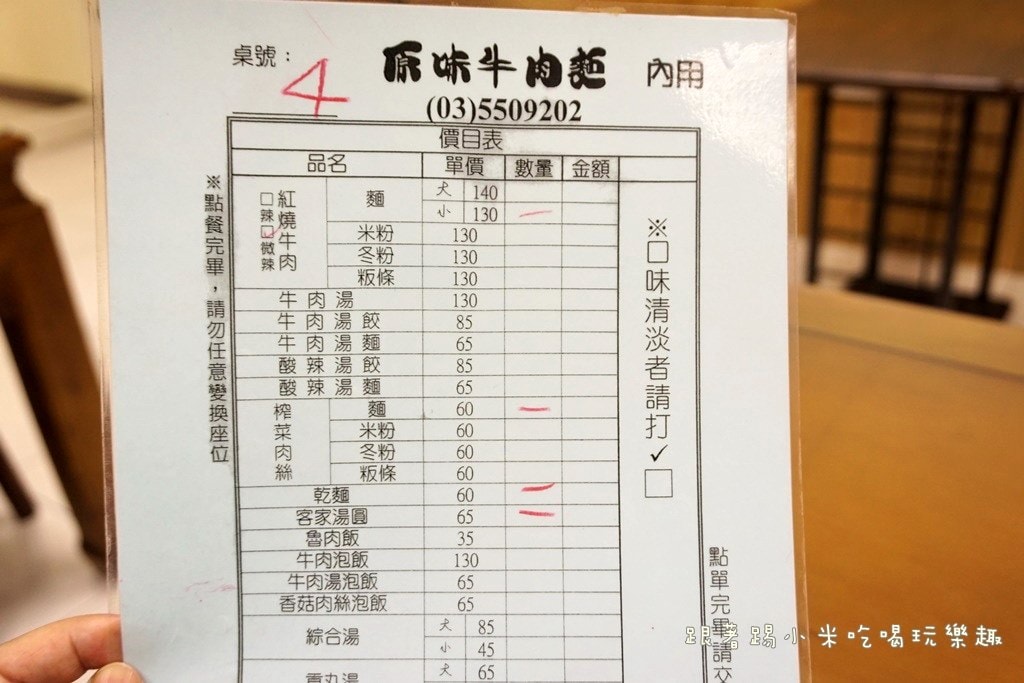 桌號：
4
原味牛肉麵 內用
(03)5509202
價目表
品名 單價 數量 金額
紅燒牛肉
□辣□微辣
麵 大 140
小 130 一
米粉 130
冬粉 130
粄條 130
牛肉湯 130
牛肉湯餃 85
牛肉湯麵 65
酸辣湯餃 85
酸辣湯麵 65
榨菜肉絲
麵 60 一
米粉 60
冬粉 60
粄條 60
乾麵 60 一
客家湯圓 65 一
魯肉飯 35
牛肉泡飯 130
牛肉湯泡飯 65
香菇肉絲泡飯 65
綜合湯 大 85
小 45
貢丸湯 大 65
※點餐完畢，請勿任意變換座位
※口味清淡者請打✓□
點單完畢請交
跟著踢小米吃喝玩樂趣